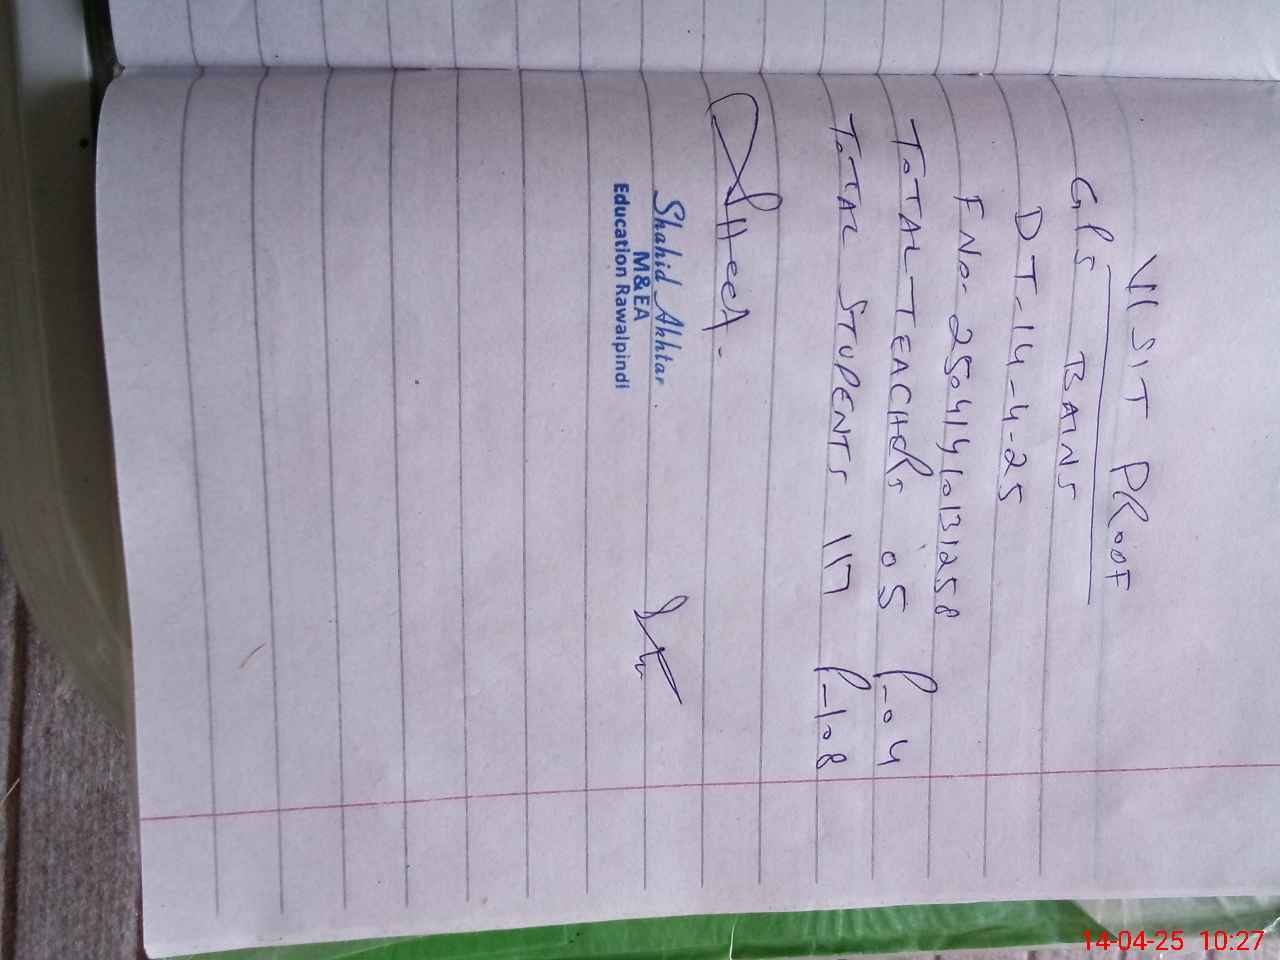 VISIT PROOF
GPS BAINS
DT-14-4-25
FNO-25041410131258
TOTAL TEACHERS 05 P-04
TOTAL STUDENTS 117 P-108
Shahid Akhtar
M&EA
Education Rawalpindi
14-04-25 10:27